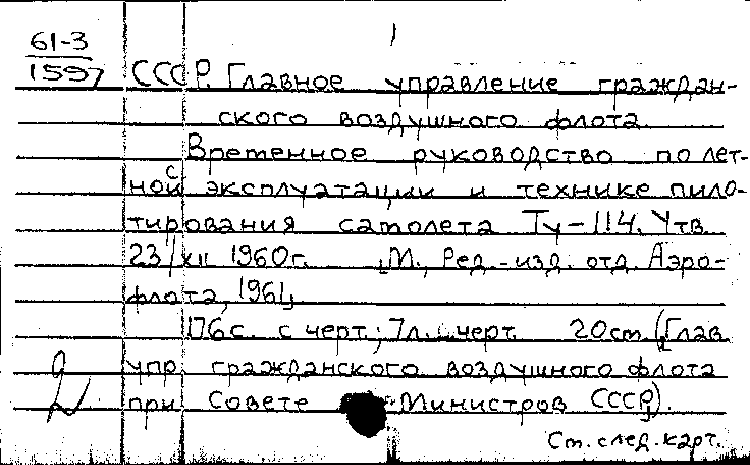 1
61-3
1597
СССР. Главное управление граждан-
ского воздушного флота.
Временное руководство по лет-
ной эксплуатации и технике пило-
тирования самолета Ту-114. Утв.
23/XII 1960г. [М., Ред.-изд. отд. Аэро-
флота, 1961]
176с. с черт.; 7л. черт. 20см. (Глав.
упр. гражданского воздушного флота
при Совете Министров СССР).
См. след. карт.